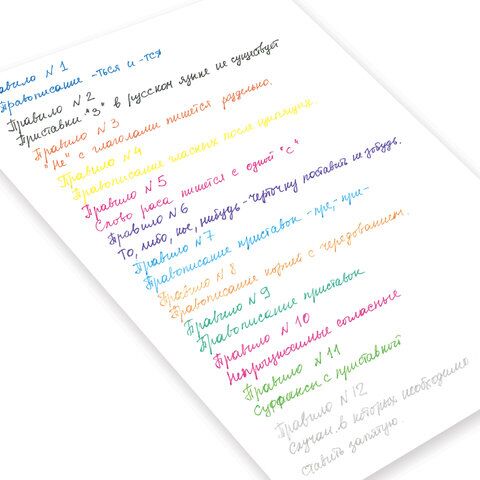 Правило №1
Правописание -ться и -тся
Правило №2
Приставки "З" в русском языке не существует
Правило №3
"Не" с глаголами пишется раздельно.
Правило №4
Правописание гласных после шипящих.
Правило №5
Слово раса пишется с одной "с"
Правило №6
То, либо, кое, нибудь - черточку поставить не забудь.
Правило №7
Правописание приставок -пре, -при-
Правило №8
Правописание корней с чередованием.
Правило №9
Правописание приставок
Правило №10
Непроизносимые согласные
Правило №11
Суффиксы с приставкой
Правило №12
Случаи в которых необходимо
ставить запятую.